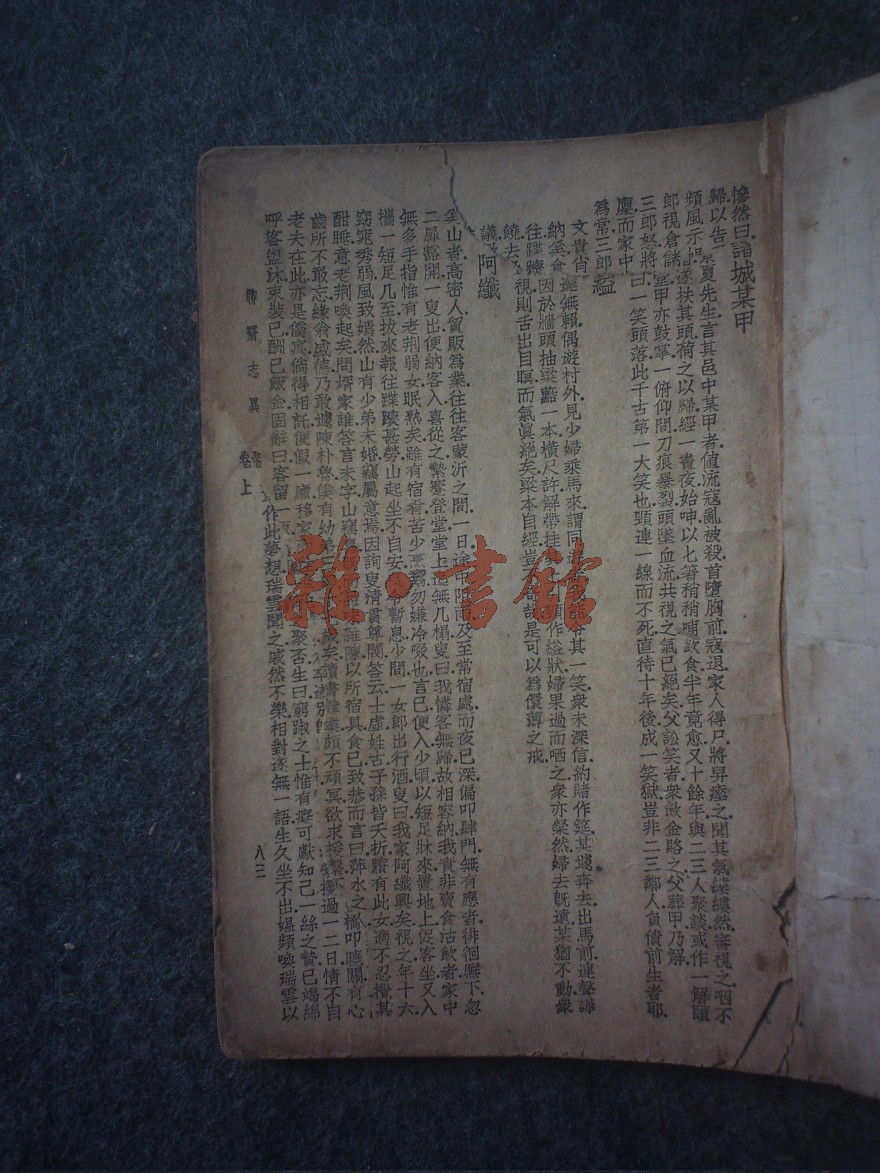 慘然曰諸城某甲
歸以告 夏先生言其邑中某甲者値流寇亂被殺首墮胸前寇退家人得尸將舁瘞之聞其氣縷縷然審視之咽不
頻風示 逐扶其頭荷之以歸經一晝夜始呻以匕箸稍稍哺飮食半年竟愈又十餘年與二三人聚談或作一解頤
郎視倉儲 堂甲亦鼓掌一俯仰間刀痕暴裂頭墜血流共視之氣已絕矣父訟笑者衆歛金賂之父葬甲乃解
三郎怒將 曰一笑頭落此千古第一大笑也頸連一線而不死直待十年後成一笑獄豈非二三鄰人負債前生者耶
廩而家中
爲常三郎 縊
文貴肖 無賴偶遊村外見少婦乘馬來謂同 其一笑衆未深信約賭作筵某遽奔去出馬前連聲譁
納 食 因於牆頭抽梁𪎮一本橫尺許解帶挂 作縊狀婦果過而哂之衆亦粲然婦去旣遠某猶不動衆
往蹀躞 視則舌出目瞑而氣眞絕矣梁本自經豈 哉是可以爲儇薄之戒
饒去
議 阿纖
奚山者高密人貿販爲業往往客蒙沂之間一日途中阻雨及至常宿處而夜已深徧叩肆門無有應者徘徊廡下忽
二扉豁開一叟出便納客入喜從之縶蹇登堂堂上迄無几榻叟曰我憐客無歸故相容納我實非賣食沽飮者家中
無多手指惟有老荆弱女眠熟矣雖有宿肴苦少烹 勿嫌冷啜也言已便入少頃以短足牀來置地上促客坐又入
攜一短足几至拔來報往蹀躞甚勞山起坐不自安 暫息少間一女郎出行酒叟曰我家阿纖興矣視之年十六
窈窕秀弱風致嫣然山有少弟未婚竊屬意焉因詢叟淸貫尊閥答云士虛姓古子孫皆夭折賸有此女適不忍攪其
酣睡意老荆喚起矣問壻家誰答言未字山竊 雜陳以所宿具食已致恭而言曰萍水之 叩應關有心
齒所不敢忘緣翁盛德乃敢遽陳朴魯僕有幼弟 矣讀書 業頗不頑冥欲求援繫不 過一二日情不自
老夫在此亦是僑寓倘得相託便假一廬移家 聚否生曰窮踧之士惟有癡可獻知己一絲之贄已竭綿
呼客盥沐束裝已酬已飯金固辭曰客留一 作此夢想瑞雲聞之戚然不樂相對遂無一語生久坐不出媼頻喚瑞雲以
聊齋志異
卷上
八三
雜·書館